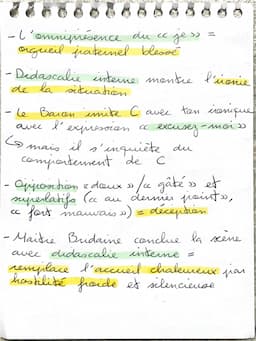 - L'omniprésence du « je » =
orgueil paternel blessé
- Didascalie interne montre l'ironie
de la situation
- Le Baron imite C avec ton ironique
avec l'expression « excusez-moi »
↳ mais il s'inquiète du
comportement de C
- Opposition « doux » / « gâté » et
superlatifs (« au dernier point »,
« fort mauvais ») = déception
- Maître Bridaine conclue la scène
avec didascalie interne =
remplace l'accueil chaleureux par
hostilité froide et silencieuse